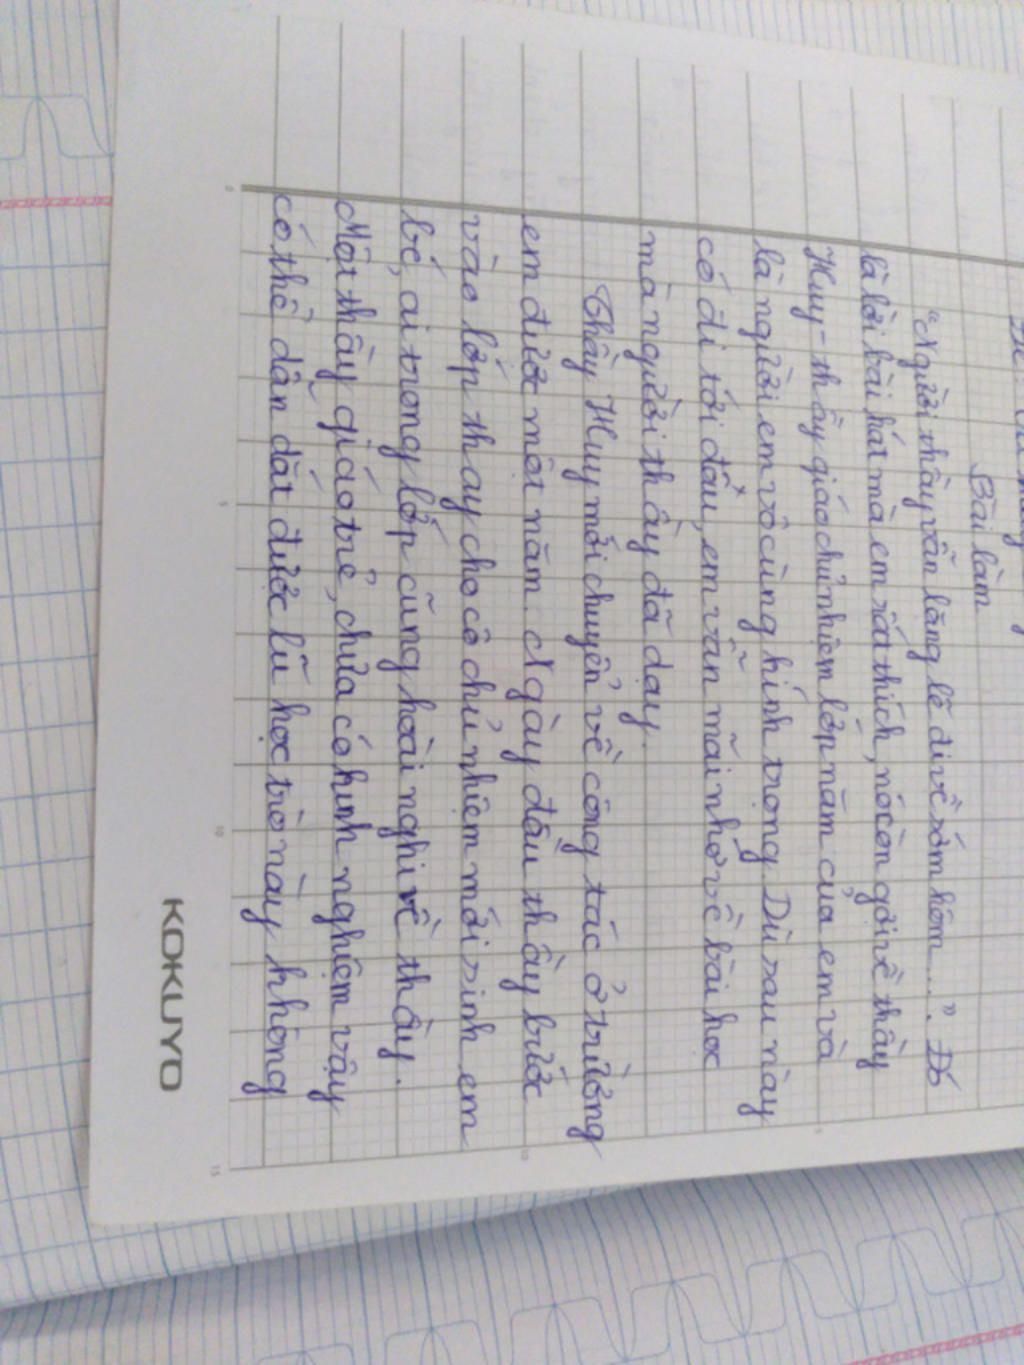 Bài làm
"Người thầy vẫn lặng lẽ đi về sớm hôm...". Đó
là lời bài hát mà em rất thích, nó còn gợi về thầy
Huy - thầy giáo chủ nhiệm lớp năm của em và
là người em vô cùng kính trọng. Dù sau này
có đi tới đâu, em vẫn mãi nhớ về bài học
mà người thầy đã dạy.
Thầy Huy mới chuyển về công tác ở trường
em được một năm. Ngày đầu thầy bước
vào lớp thay cho cô chủ nhiệm mới sinh em
bé, ai trong lớp cũng hoài nghi về thầy.
Một thầy giáo trẻ, chưa có kinh nghiệm vậy
có thể dẫn dắt được lũ học trò này không
KOKUYO